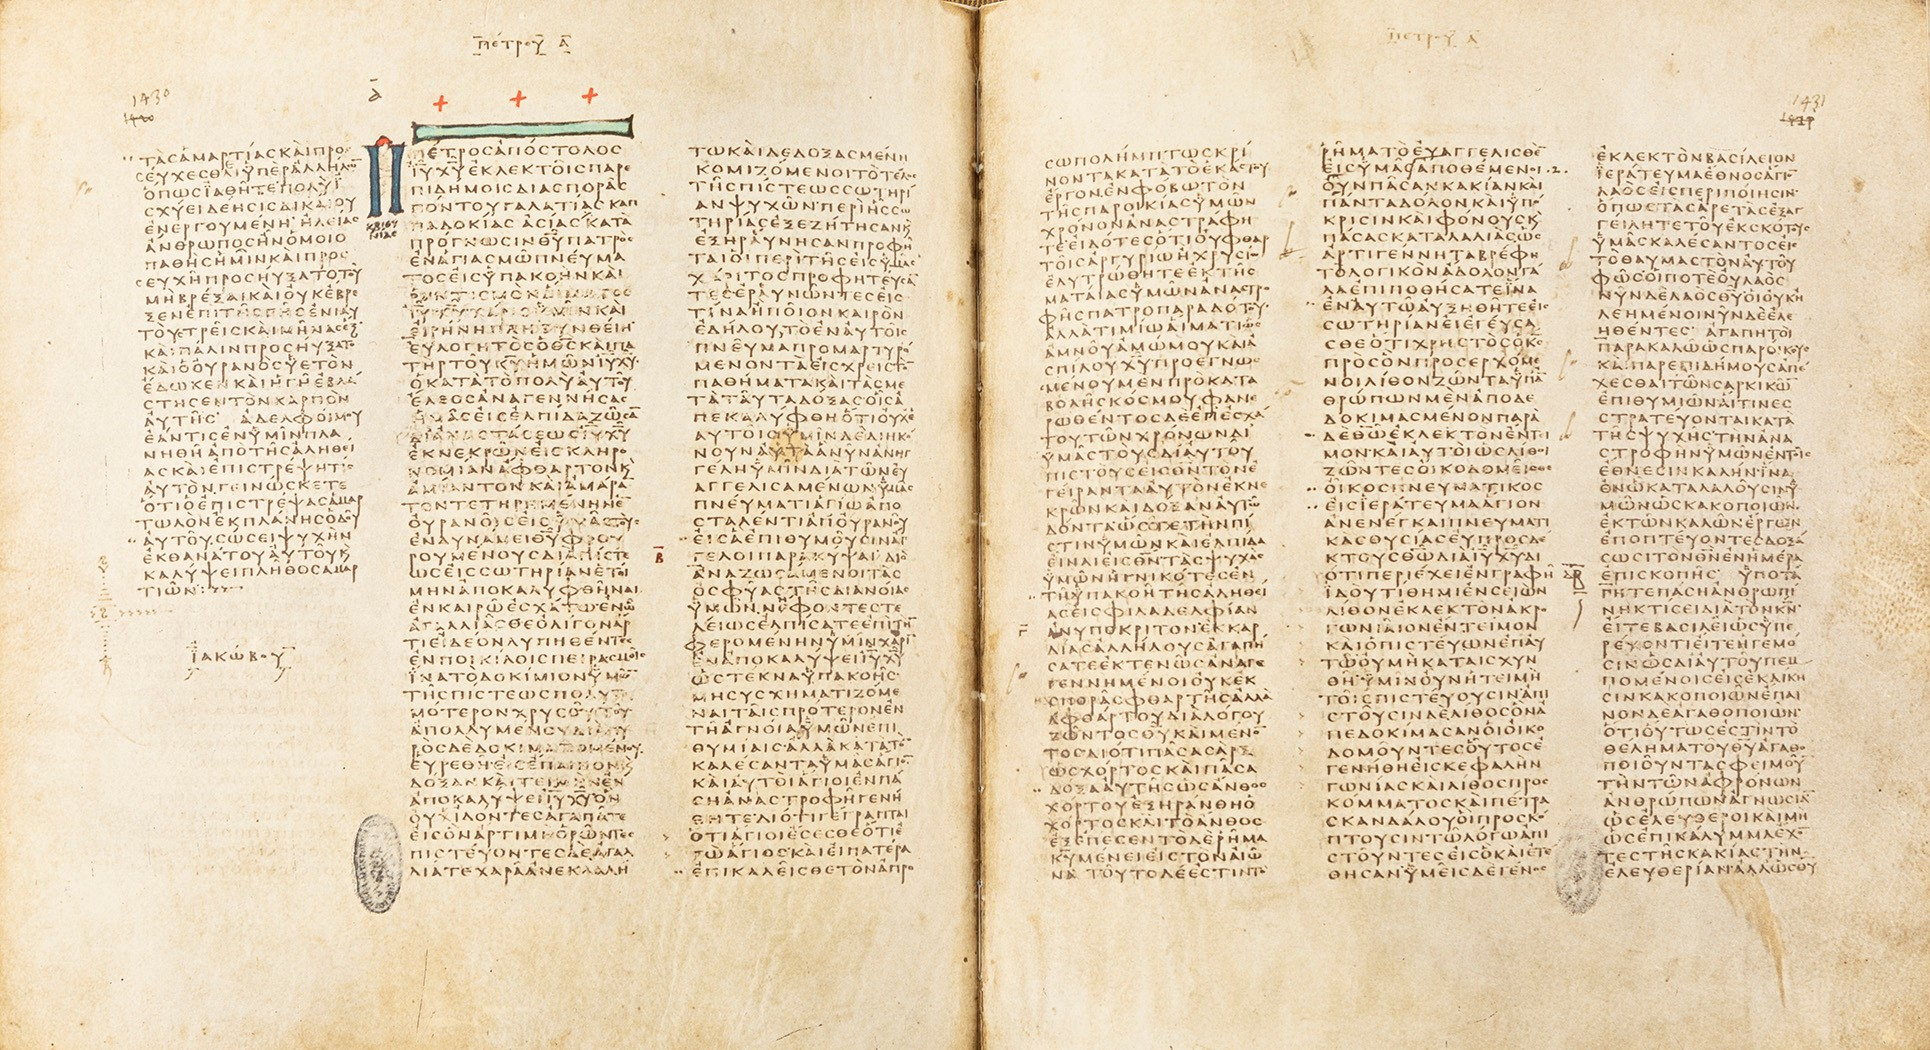 ΠΕΤΡΟΥ Α
1430
ΤΑϹΑΜΑΡΤΙΑϹΚΑΙΠΡΟ
ϹΕΥΧΕϹΘΕΥΠΕΡΑΛΛΗΛΩ
ΟΠΩϹΙΑΘΗΤΕΠΟΛΥΙ
ϹΧΥΕΙΔΕΗϹΙϹΔΙΚΑΙΟΥ
ΕΝΕΡΓΟΥΜΕΝΗΗΛΕΙΑϹ
ΑΝΘΡΩΠΟϹΗΝΟΜΟΙΟ
ΠΑΘΗϹΗΜΙΝΚΑΙΠΡΟϹ
ΕΥΧΗΠΡΟϹΗΥΞΑΤΟΤΟΥ
ΜΗΒΡΕΞΑΙΚΑΙΟΥΚΕΒΡΕ
ΞΕΝΕΠΙΤΗϹΓΗϹΕΝΙΑΥ
ΤΟΥϹΤΡΕΙϹΚΑΙΜΗΝΑϹΕΞ
ΚΑΙΠΑΛΙΝΠΡΟϹΗΥΞΑΤΟ
ΚΑΙΟΟΥΡΑΝΟϹΥΕΤΟΝ
ΕΔΩΚΕΝΚΑΙΗΓΗΕΒΛΑ
ϹΤΗϹΕΝΤΟΝΚΑΡΠΟΝ
ΑΥΤΗϹ ΑΔΕΛΦΟΙΜΟΥ
ΕΑΝΤΙϹΕΝΥΜΙΝΠΛΑ
ΝΗΘΗΑΠΟΤΗϹΑΛΗΘΕΙ
ΑϹΚΑΙΕΠΙϹΤΡΕΨΗΤΙϹ
ΑΥΤΟΝΓΕΙΝΩϹΚΕΤΕ
ΟΤΙΟΕΠΙϹΤΡΕΨΑϹΑΜΑΡ
ΤΩΛΟΝΕΚΠΛΑΝΗϹΟΔΟΥ
ΑΥΤΟΥϹΩϹΕΙΨΥΧΗΝ
ΕΚΘΑΝΑΤΟΥΑΥΤΟΥΚ
ΚΑΛΥΨΕΙΠΛΗΘΟϹΑΜΑΡ
ΤΙΩΝ
ΙΑΚΩΒΟΥ
ΠΕΤΡΟϹΑΠΟϹΤΟΛΟϹ
ΙΥΧΥΕΚΛΕΚΤΟΙϹΠΑΡΕ
ΠΙΔΗΜΟΙϹΔΙΑϹΠΟΡΑϹ
ΠΟΝΤΟΥΓΑΛΑΤΙΑϹΚΑΠ
ΠΑΔΟΚΙΑϹΑϹΙΑϹΚΑΤΑ
ΠΡΟΓΝΩϹΙΝΘΥΠΑΤΡΟϹ
ΕΝΑΓΙΑϹΜΩΠΝΕΥΜΑ
ΤΟϹΕΙϹΥΠΑΚΟΗΝΚΑΙ
ΡΑΝΤΙϹΜΟΝΑΙΜΑΤΟϹ
ΙΥΧΥΧΑΡΙϹΥΜΙΝΚΑΙ
ΕΙΡΗΝΗΠΛΗΘΥΝΘΕΙΗ
ΕΥΛΟΓΗΤΟϹΟΘϹΚΑΙΠΑ
ΤΗΡΤΟΥΚΥΗΜΩΝΙΥΧΥ
ΟΚΑΤΑΤΟΠΟΛΥΑΥΤΟΥ
ΕΛΕΟϹΑΝΑΓΕΝΝΗϹΑϹ
ΗΜΑϹΕΙϹΕΛΠΙΔΑΖΩϹΑ
ΔΙΑΝΑϹΤΑϹΕΩϹΙΥΧΥ
ΕΚΝΕΚΡΩΝΕΙϹΚΛΗΡΟ
ΝΟΜΙΑΝΑΦΘΑΡΤΟΝΚ
ΑΜΙΑΝΤΟΝΚΑΙΑΜΑΡΑ
ΤΟΝΤΕΤΗΡΗΜΕΝΗΝΕ
ΟΥΡΑΝΟΙϹΕΙϹΥΜΑϹΤΟΥϹ
ΕΝΔΥΝΑΜΕΙΘΥΦΡΟΥ
ΡΟΥΜΕΝΟΥϹΔΙΑΠΙϹΤΕ
ΩϹΕΙϹϹΩΤΗΡΙΑΝΕΤΟΙ
ΜΗΝΑΠΟΚΑΛΥΦΘΗΝΑΙ
ΕΝΚΑΙΡΩΕϹΧΑΤΩΕΝΩ
ΑΓΑΛΛΙΑϹΘΕΟΛΙΓΟΝΑΡ
ΤΙΕΙΔΕΟΝΛΥΠΗΘΕΝΤΕϹ
ΕΝΠΟΙΚΙΛΟΙϹΠΕΙΡΑϹΜΟΙϹ
ΙΝΑΤΟΔΟΚΙΜΙΟΝΥΜΩ
ΤΗϹΠΙϹΤΕΩϹΠΟΛΥΤΙ
ΜΟΤΕΡΟΝΧΡΥϹΟΥΤΟΥ
ΑΠΟΛΛΥΜΕΝΟΥΔΙΑΠΥ
ΡΟϹΔΕΔΟΚΙΜΑΖΟΜΕΝΟΥ
ΕΥΡΕΘΗΕΙϹΕΠΑΙΝΟΝΚ
ΔΟΞΑΝΚΑΙΤΕΙΜΗΝΕΝ
ΑΠΟΚΑΛΥΨΕΙΙΥΧΥΟΝ
ΟΥΧΙΔΟΝΤΕϹΑΓΑΠΑΤΕ
ΕΙϹΟΝΑΡΤΙΜΗΟΡΩΝΤΕϹ
ΠΙϹΤΕΥΟΝΤΕϹΔΕΑΓΑΛ
ΛΙΑΤΕΧΑΡΑΑΝΕΚΛΑΛΗ
ΤΩΚΑΙΔΕΔΟΞΑϹΜΕΝΗ
ΚΟΜΙΖΟΜΕΝΟΙΤΟΤΕΛΟϹ
ΤΗϹΠΙϹΤΕΩϹϹΩΤΗΡΙ
ΑΝΨΥΧΩΝΠΕΡΙΗϹϹΩ
ΤΗΡΙΑϹΕΞΕΖΗΤΗϹΑΝΚ
ΕΞΗΡΑΥΝΗϹΑΝΠΡΟΦΗ
ΤΑΙΟΙΠΕΡΙΤΗϹΕΙϹΥΜΑϹ
ΧΑΡΙΤΟϹΠΡΟΦΗΤΕΥϹΑ
ΤΕϹΕΡΑΥΝΩΝΤΕϹΕΙϹ
ΤΙΝΑΗΠΟΙΟΝΚΑΙΡΟΝ
ΕΔΗΛΟΥΤΟΕΝΑΥΤΟΙϹ
ΠΝΕΥΜΑΠΡΟΜΑΡΤΥΡΟ
ΜΕΝΟΝΤΑΕΙϹΧΡΕΙϹΤΟ
ΠΑΘΗΜΑΤΑΚΑΙΤΑϹΜΕ
ΤΑΤΑΥΤΑΔΟΞΑϹΟΙϹΑ
ΠΕΚΑΛΥΦΘΗΟΤΙΟΥΧΕ
ΑΥΤΟΙϹΥΜΙΝΔΕΔΙΗΚΟ
ΝΟΥΝΑΥΤΑΑΝΥΝΑΝΗΓ
ΓΕΛΗΥΜΙΝΔΙΑΤΩΝΕΥ
ΑΓΓΕΛΙϹΑΜΕΝΩΝΥΜΑϹ
ΠΝΕΥΜΑΤΙΑΓΙΩΑΠΟ
ϹΤΑΛΕΝΤΙΑΠΟΥΡΑΝΟΥ
ΕΙϹΑΕΠΙΘΥΜΟΥϹΙΝΑΓ
ΓΕΛΟΙΠΑΡΑΚΥΨΑΙΔΙΟ
ΑΝΑΖΩϹΑΜΕΝΟΙΤΑϹ
ΟϹΦΥΑϹΤΗϹΔΙΑΝΟΙΑϹ
ΥΜΩΝΝΗΦΟΝΤΕϹΤΕ
ΛΕΙΩϹΕΛΠΙϹΑΤΕΕΠΙΤΗ
ΦΕΡΟΜΕΝΗΝΥΜΙΝΧΑΡΙ
ΕΝΑΠΟΚΑΛΥΨΕΙΙΥΧΥ
ΩϹΤΕΚΝΑΥΠΑΚΟΗϹ
ΜΗϹΥϹΧΗΜΑΤΙΖΟΜΕ
ΝΑΙΤΑΙϹΠΡΟΤΕΡΟΝΕΝ
ΤΗΑΓΝΟΙΑΥΜΩΝΕΠΙ
ΘΥΜΙΑΙϹΑΛΛΑΚΑΤΑΤΟ
ΚΑΛΕϹΑΝΤΑΥΜΑϹΑΓΙΟ
ΚΑΙΑΥΤΟΙΑΓΙΟΙΕΝΠΑ
ϹΗΑΝΑϹΤΡΟΦΗΓΕΝΗ
ΘΗΤΕΔΙΟΤΙΓΕΓΡΑΠΤΑΙ
ΟΤΙΑΓΙΟΙΕϹΕϹΘΕΟΤΙΕ
ΓΩΑΓΙΟϹΚΑΙΕΙΠΑΤΕΡΑ
ΕΠΙΚΑΛΕΙϹΘΕΤΟΝΑΠΡΟ
ΠΕΤΡΟΥ Α
1431
ϹΩΠΟΛΗΜΠΤΩϹΚΡΙ
ΝΟΝΤΑΚΑΤΑΤΟΕΚΑϹΤΟΥ
ΕΡΓΟΝΕΝΦΟΒΩΤΟΝ
ΤΗϹΠΑΡΟΙΚΙΑϹΥΜΩΝ
ΧΡΟΝΟΝΑΝΑϹΤΡΑΦΗ
ΤΕΕΙΔΟΤΕϹΟΤΙΟΥΦΘΑΡ
ΤΟΙϹΑΡΓΥΡΙΩΗΧΡΥϹΙ
ΕΛΥΤΡΩΘΗΤΕΕΚΤΗϹ
ΜΑΤΑΙΑϹΥΜΩΝΑΝΑϹΤΡΟ
ΦΗϹΠΑΤΡΟΠΑΡΑΔΟΤΟΥ
ΑΛΛΑΤΙΜΙΩΑΙΜΑΤΙΩϹ
ΑΜΝΟΥΑΜΩΜΟΥΚΑΙΑ
ϹΠΙΛΟΥΧΥΠΡΟΕΓΝΩϹ
ΜΕΝΟΥΜΕΝΠΡΟΚΑΤΑ
ΒΟΛΗϹΚΟϹΜΟΥΦΑΝΕ
ΡΩΘΕΝΤΟϹΔΕΕΠΕϹΧΑ
ΤΟΥΤΩΝΧΡΟΝΩΝΔΙ
ΥΜΑϹΤΟΥϹΔΙΑΥΤΟΥ
ΠΙϹΤΟΥϹΕΙϹΘΝΤΟΝΕ
ΓΕΙΡΑΝΤΑΑΥΤΟΝΕΚΝΕ
ΚΡΩΝΚΑΙΔΟΞΑΝΑΥΤΩ
ΔΟΝΤΑΩϹΤΕΤΗΝΠΙ
ϹΤΙΝΥΜΩΝΚΑΙΕΛΠΙΔΑ
ΕΙΝΑΙΕΙϹΘΝΤΑϹΨΥΧΑϹ
ΥΜΩΝΗΓΝΙΚΟΤΕϹΕΝ
ΤΗΥΠΑΚΟΗΤΗϹΑΛΗΘΕΙ
ΑϹΕΙϹΦΙΛΑΔΕΛΦΙΑΝ
ΑΝΥΠΟΚΡΙΤΟΝΕΚΚΑΡ
ΔΙΑϹΑΛΛΗΛΟΥϹΑΓΑΠΗ
ϹΑΤΕΕΚΤΕΝΩϹΑΝΑΓΕ
ΓΕΝΝΗΜΕΝΟΙΟΥΚΕΚ
ϹΠΟΡΑϹΦΘΑΡΤΗϹΑΛΛΑ
ΑΦΘΑΡΤΟΥΔΙΑΛΟΓΟΥ
ΖΩΝΤΟϹΘΥΚΑΙΜΕΝΟ
ΤΟϹΔΙΟΤΙΠΑϹΑϹΑΡΞ
ΩϹΧΟΡΤΟϹΚΑΙΠΑϹΑ
ΔΟΞΑΑΥΤΗϹΩϹΑΝΘΟϹ
ΧΟΡΤΟΥΕΞΗΡΑΝΘΗΟ
ΧΟΡΤΟϹΚΑΙΤΟΑΝΘΟϹ
ΕΞΕΠΕϹΕΝΤΟΔΕΡΗΜΑ
ΚΥΜΕΝΕΙΕΙϹΤΟΝΑΙΩ
ΝΑ ΤΟΥΤΟΔΕΕϹΤΙΝΤΟ
ΡΗΜΑΤΟΕΥΑΓΓΕΛΙϹΘΕ
ΕΙϹΥΜΑϹΑΠΟΘΕΜΕΝΟΙ
ΟΥΝΠΑϹΑΝΚΑΚΙΑΝΚΑΙ
ΠΑΝΤΑΔΟΛΟΝΚΑΙΥΠΟ
ΚΡΙϹΙΝΚΑΙΦΟΝΟΥϹΚ
ΠΑϹΑϹΚΑΤΑΛΑΛΙΑϹΩϹ
ΑΡΤΙΓΕΝΝΗΤΑΒΡΕΦΗ
ΤΟΛΟΓΙΚΟΝΑΔΟΛΟΝΓΑ
ΛΑΕΠΙΠΟΘΗϹΑΤΕΙΝΑ
ΕΝΑΥΤΩΑΥΞΗΘΗΤΕΕΙϹ
ϹΩΤΗΡΙΑΝΕΙΕΓΕΥϹΑ
ϹΘΕΟΤΙΧΡΗϹΤΟϹΟΚϹ
ΠΡΟϹΟΝΠΡΟϹΕΡΧΟΜΕ
ΝΟΙΛΙΘΟΝΖΩΝΤΑΥΠΑ
ΘΡΩΠΩΝΜΕΝΑΠΟΔΕ
ΔΟΚΙΜΑϹΜΕΝΟΝΠΑΡΑ
ΔΕΘΩΕΚΛΕΚΤΟΝΕΝΤΙ
ΜΟΝΚΑΙΑΥΤΟΙΩϹΛΙΘΟΙ
ΖΩΝΤΕϹΟΙΚΟΔΟΜΕΙϹΘΕ
ΟΙΚΟϹΠΝΕΥΜΑΤΙΚΟϹ
ΕΙϹΙΕΡΑΤΕΥΜΑΑΓΙΟΝ
ΑΝΕΝΕΓΚΑΙΠΝΕΥΜΑΤΙ
ΚΑϹΘΥϹΙΑϹΕΥΠΡΟϹΔΕ
ΚΤΟΥϹΘΩΔΙΑΙΥΧΥΔΙ
ΟΤΙΠΕΡΙΕΧΕΙΕΝΓΡΑΦΗ
ΙΔΟΥΤΙΘΗΜΙΕΝϹΕΙΩΝ
ΛΙΘΟΝΕΚΛΕΚΤΟΝΑΚΡΟ
ΓΩΝΙΑΙΟΝΕΝΤΕΙΜΟΝ
ΚΑΙΟΠΙϹΤΕΥΩΝΕΠΑΥ
ΤΩΟΥΜΗΚΑΤΑΙϹΧΥΝ
ΘΗΥΜΙΝΟΥΝΗΤΕΙΜΗ
ΤΟΙϹΠΙϹΤΕΥΟΥϹΙΝΑΠΙ
ϹΤΟΥϹΙΝΔΕΛΙΘΟϹΟΝΑ
ΠΕΔΟΚΙΜΑϹΑΝΟΙΟΙΚΟ
ΔΟΜΟΥΝΤΕϹΟΥΤΟϹΕ
ΓΕΝΗΘΗΕΙϹΚΕΦΑΛΗΝ
ΓΩΝΙΑϹΚΑΙΛΙΘΟϹΠΡΟϹ
ΚΟΜΜΑΤΟϹΚΑΙΠΕΤΡΑ
ϹΚΑΝΔΑΛΟΥΟΙΠΡΟϹΚΟ
ΠΤΟΥϹΙΝΤΩΛΟΓΩΑΠΙ
ϹΤΟΥΝΤΕϹΕΙϹΟΚΑΙΕΤΕ
ΘΗϹΑΝΥΜΕΙϹΔΕΓΕΝΟϹ
ΕΚΛΕΚΤΟΝΒΑϹΙΛΕΙΟΝ
ΙΕΡΑΤΕΥΜΑΕΘΝΟϹΑΓΙΟ
ΛΑΟϹΕΙϹΠΕΡΙΠΟΙΗϹΙΝ
ΟΠΩϹΤΑϹΑΡΕΤΑϹΕΞΑΓ
ΓΕΙΛΗΤΕΤΟΥΕΚϹΚΟΤΟΥϹ
ΥΜΑϹΚΑΛΕϹΑΝΤΟϹΕΙϹ
ΤΟΘΑΥΜΑϹΤΟΝΑΥΤΟΥ
ΦΩϹΟΙΠΟΤΕΟΥΛΑΟϹ
ΝΥΝΔΕΛΑΟϹΘΥΟΙΟΥΚΗ
ΛΕΗΜΕΝΟΙΝΥΝΔΕΕΛΕ
ΗΘΕΝΤΕϹ ΑΓΑΠΗΤΟΙ
ΠΑΡΑΚΑΛΩΩϹΠΑΡΟΙΚΟΥϹ
ΚΑΙΠΑΡΕΠΙΔΗΜΟΥϹΑΠΕ
ΧΕϹΘΑΙΤΩΝϹΑΡΚΙΚΩ
ΕΠΙΘΥΜΙΩΝΑΙΤΙΝΕϹ
ϹΤΡΑΤΕΥΟΝΤΑΙΚΑΤΑ
ΤΗϹΨΥΧΗϹΤΗΝΑΝΑ
ϹΤΡΟΦΗΝΥΜΩΝΕΝΤΟΙϹ
ΕΘΝΕϹΙΝΚΑΛΗΝΙΝΑ
ΕΝΩΚΑΤΑΛΑΛΟΥϹΙΝΥ
ΜΩΝΩϹΚΑΚΟΠΟΙΩΝ
ΕΚΤΩΝΚΑΛΩΝΕΡΓΩΝ
ΕΠΟΠΤΕΥΟΝΤΕϹΔΟΞΑ
ϹΩϹΙΤΟΝΘΝΕΝΗΜΕΡΑ
ΕΠΙϹΚΟΠΗϹ ΥΠΟΤΑ
ΓΗΤΕΠΑϹΗΑΝΘΡΩΠΙ
ΝΗΚΤΙϹΕΙΔΙΑΤΟΝΚΝ
ΕΙΤΕΒΑϹΙΛΕΙΩϹΥΠΕ
ΡΕΧΟΝΤΙΕΙΤΕΗΓΕΜΟ
ϹΙΝΩϹΔΙΑΥΤΟΥΠΕΜ
ΠΟΜΕΝΟΙϹΕΙϹΕΚΔΙΚΗ
ϹΙΝΚΑΚΟΠΟΙΩΝΕΠΑΙ
ΝΟΝΔΕΑΓΑΘΟΠΟΙΩΝ
ΟΤΙΟΥΤΩϹΕϹΤΙΝΤΟ
ΘΕΛΗΜΑΤΟΥΘΥΑΓΑΘΟ
ΠΟΙΟΥΝΤΑϹΦΕΙΜΟΥ
ΤΗΝΤΩΝΑΦΡΟΝΩΝ
ΑΝΘΡΩΠΩΝΑΓΝΩϹΙΑ
ΩϹΕΛΕΥΘΕΡΟΙΚΑΙΜΗ
ΩϹΕΠΙΚΑΛΥΜΜΑΕΧΟ
ΤΕϹΤΗϹΚΑΚΙΑϹΤΗΝ
ΕΛΕΥΘΕΡΙΑΝΑΛΛΩϹΘΥ